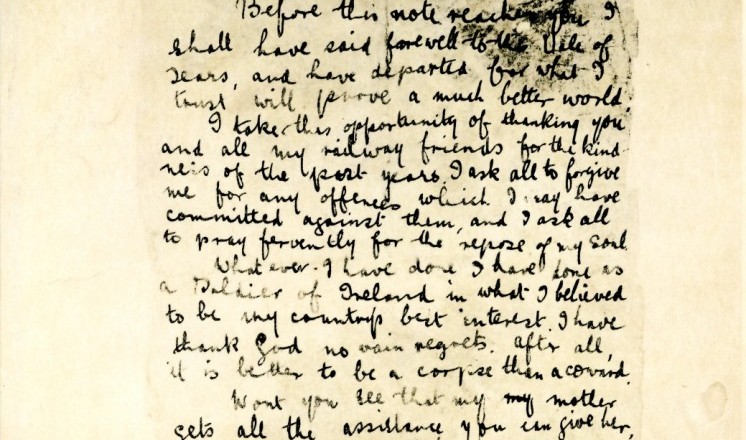 Before this note reaches you I
shall have said farewell to the Vale of
Tears, and have departed for what I
trust will prove a much better world.
I take this opportunity of thanking you
and all my railway friends for the kind-
ness of the past years. I ask all to forgive
me for any offences which I may have
committed against them, and I ask all
to pray fervently for the repose of my Soul.
Whatever I have done I have done as
a Soldier of Ireland in what I believed
to be my countrys best interest. I have
thank God no vain regrets. After all,
it is better to be a corpse than a coward.
Wont you see that my my mother
gets all the assistance you can give her.